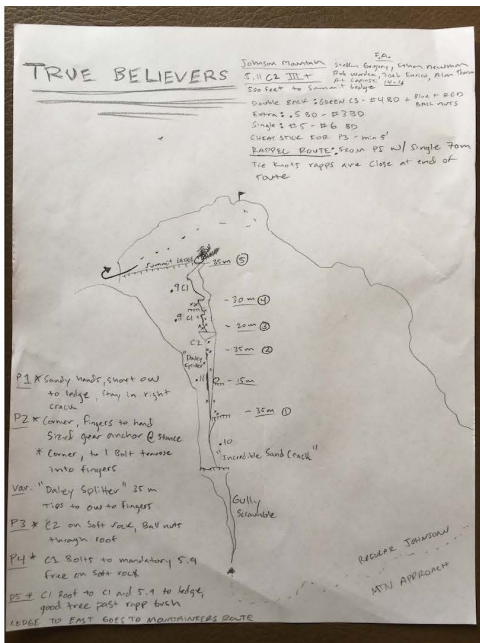 TRUE BELIEVERS
Johnson Mountain
5.11 C2 III+
500 feet to Summit ledge
F.A.
Steffan Gregory, Ethan Newman
Rob Warden,
Double Rack: GREEN C3 - #4 BD + Blue + RED
BALL NUTS
Extra: .5 BD - #3 BD
Single: #5 - #6 BD
CHEAT STICK FOR P3 - min 5'
RAPPEL ROUTE: FROM P5 w/ single 70m
Tie Knots rapps are close at end of
route
Summit Ledge
35m ⑤
.9 C1
- 30m ④
.9 C1
- 20m ③
C2
- 35m ②
"Daley
Splitter"
.11
- 15m
- 35m ①
.10
"Incredible Sand Crack"
Gully
Scramble
P1 * Sandy hands, short ow
to ledge, stay in right
crack
P2 * Corner, fingers to hand
Sized gear anchor @ Stance
* Corner, to 1 Bolt traverse
into fingers
Var. "Daley Splitter" 35m
Tips to ow to fingers
P3 * C2 on Soft rock, Ball nuts
through roof
P4 * C1 Bolts to mandatory 5.9
free on soft rock
P5 * C1 Roof to C1 and 5.9 to ledge,
good tree past rapp bush
LEDGE TO EAST GOES TO MOUNTAINEERS ROUTE
REGULAR JOHNSON
MTN APPROACH